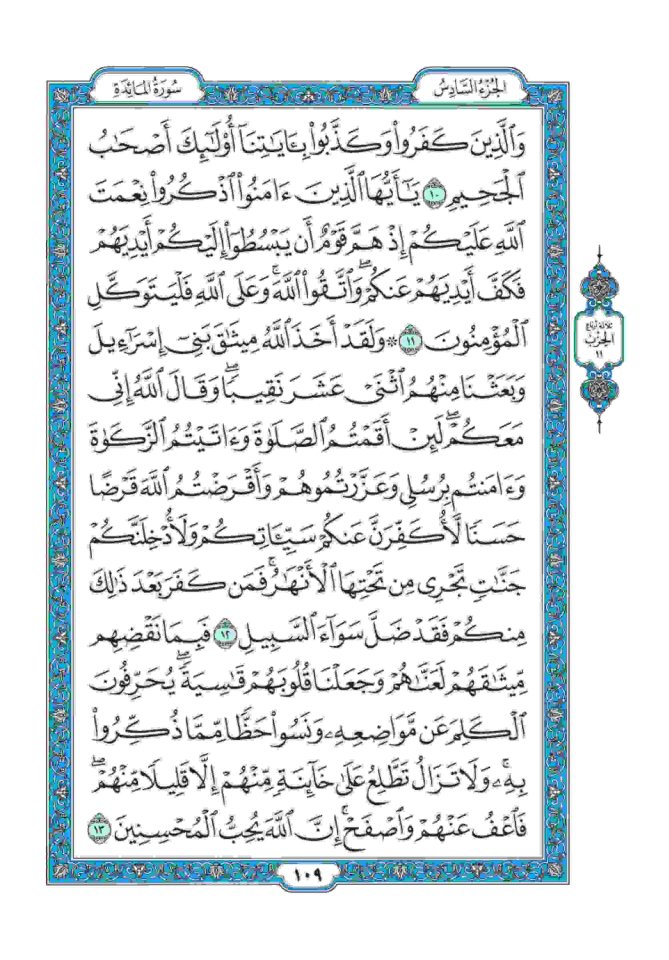 الجُزْءُ السَّادِسُ
سُورَةُ المَائِدَةِ
وَٱلَّذِينَ كَفَرُواْ وَكَذَّبُواْ بِـَٔايَٰتِنَآ أُوْلَٰٓئِكَ أَصْحَٰبُ
ٱلْجَحِيمِ ١٠ يَٰٓأَيُّهَا ٱلَّذِينَ ءَامَنُواْ ٱذْكُرُواْ نِعْمَتَ
ٱللَّهِ عَلَيْكُمْ إِذْ هَمَّ قَوْمٌ أَن يَبْسُطُوٓاْ إِلَيْكُمْ أَيْدِيَهُمْ
فَكَفَّ أَيْدِيَهُمْ عَنكُمْۖ وَٱتَّقُواْ ٱللَّهَۚ وَعَلَى ٱللَّهِ فَلْيَتَوَكَّلِ
ٱلْمُؤْمِنُونَ ١١ ۞ وَلَقَدْ أَخَذَ ٱللَّهُ مِيثَٰقَ بَنِيٓ إِسْرَٰٓءِيلَ
وَبَعَثْنَا مِنْهُمُ ٱثْنَيْ عَشَرَ نَقِيبًاۖ وَقَالَ ٱللَّهُ إِنِّي
مَعَكُمْۖ لَئِنْ أَقَمْتُمُ ٱلصَّلَوٰةَ وَءَاتَيْتُمُ ٱلزَّكَوٰةَ
وَءَامَنتُم بِرُسُلِي وَعَزَّرْتُمُوهُمْ وَأَقْرَضْتُمُ ٱللَّهَ قَرْضًا
حَسَنًا لَّأُكَفِّرَنَّ عَنكُمْ سَيِّـَٔاتِكُمْ وَلَأُدْخِلَنَّكُمْ
جَنَّٰتٍ تَجْرِي مِن تَحْتِهَا ٱلْأَنْهَٰرُۚ فَمَن كَفَرَ بَعْدَ ذَٰلِكَ
مِنكُمْ فَقَدْ ضَلَّ سَوَآءَ ٱلسَّبِيلِ ١٢ فَبِمَا نَقْضِهِم
مِّيثَٰقَهُمْ لَعَنَّٰهُمْ وَجَعَلْنَا قُلُوبَهُمْ قَٰسِيَةًۖ يُحَرِّفُونَ
ٱلْكَلِمَ عَن مَّوَاضِعِهِۦ وَنَسُواْ حَظًّا مِّمَّا ذُكِّرُواْ
بِهِۦۚ وَلَا تَزَالُ تَطَّلِعُ عَلَىٰ خَآئِنَةٍ مِّنْهُمْ إِلَّا قَلِيلًا مِّنْهُمْۖ
فَٱعْفُ عَنْهُمْ وَٱصْفَحْۚ إِنَّ ٱللَّهَ يُحِبُّ ٱلْمُحْسِنِينَ ١٣
ثلاثة أرباع
الحِزْب
١١
١٠٩